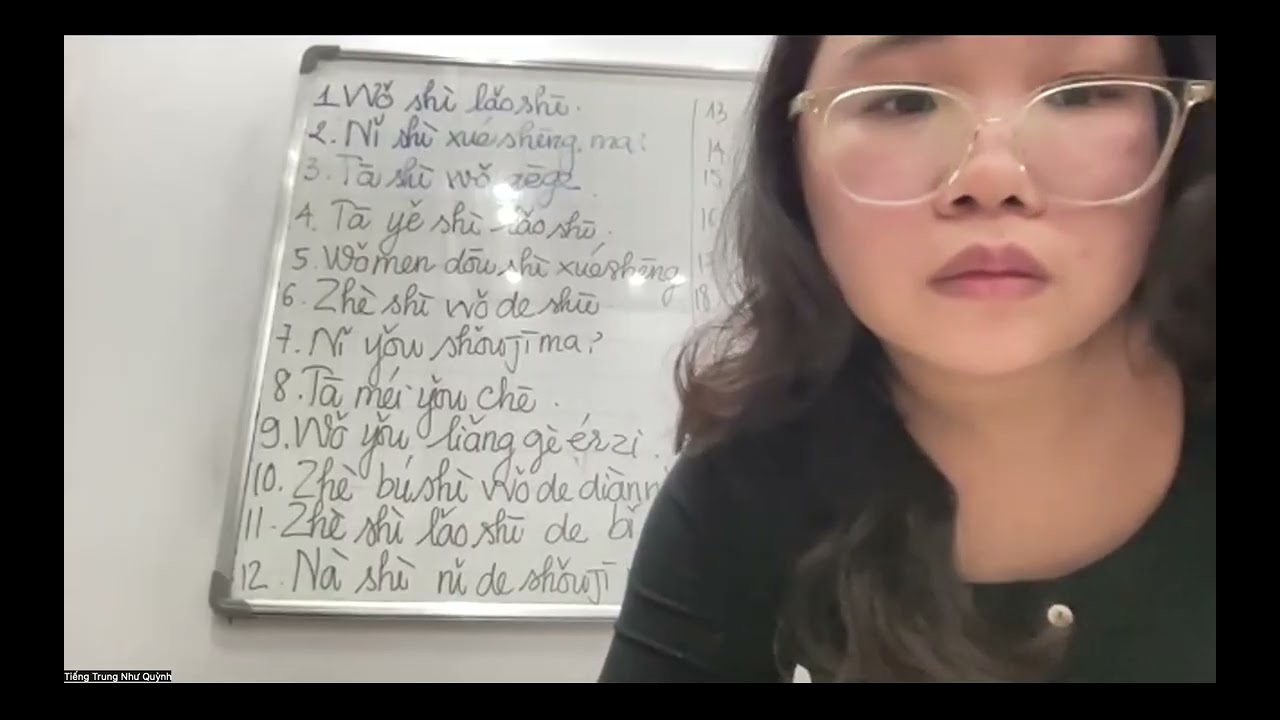 1. Wǒ shì lǎoshī.
2. Nǐ shì xuéshēng ma?
3. Tā shì wǒ gēge.
4. Tā yě shì lǎoshī.
5. Wǒmen dōu shì xuéshēng
6. Zhè shì wǒ de shū
7. Nǐ yǒu shǒujī ma?
8. Tā méi yǒu chē.
9. Wǒ yǒu liǎng gè érzi.
10. Zhè bú shì wǒ de diànn
11. Zhè shì lǎoshī de bǐ
12. Nà shì nǐ de shǒujī
13
14
15
16
17
18
Tiếng Trung Như Quỳnh